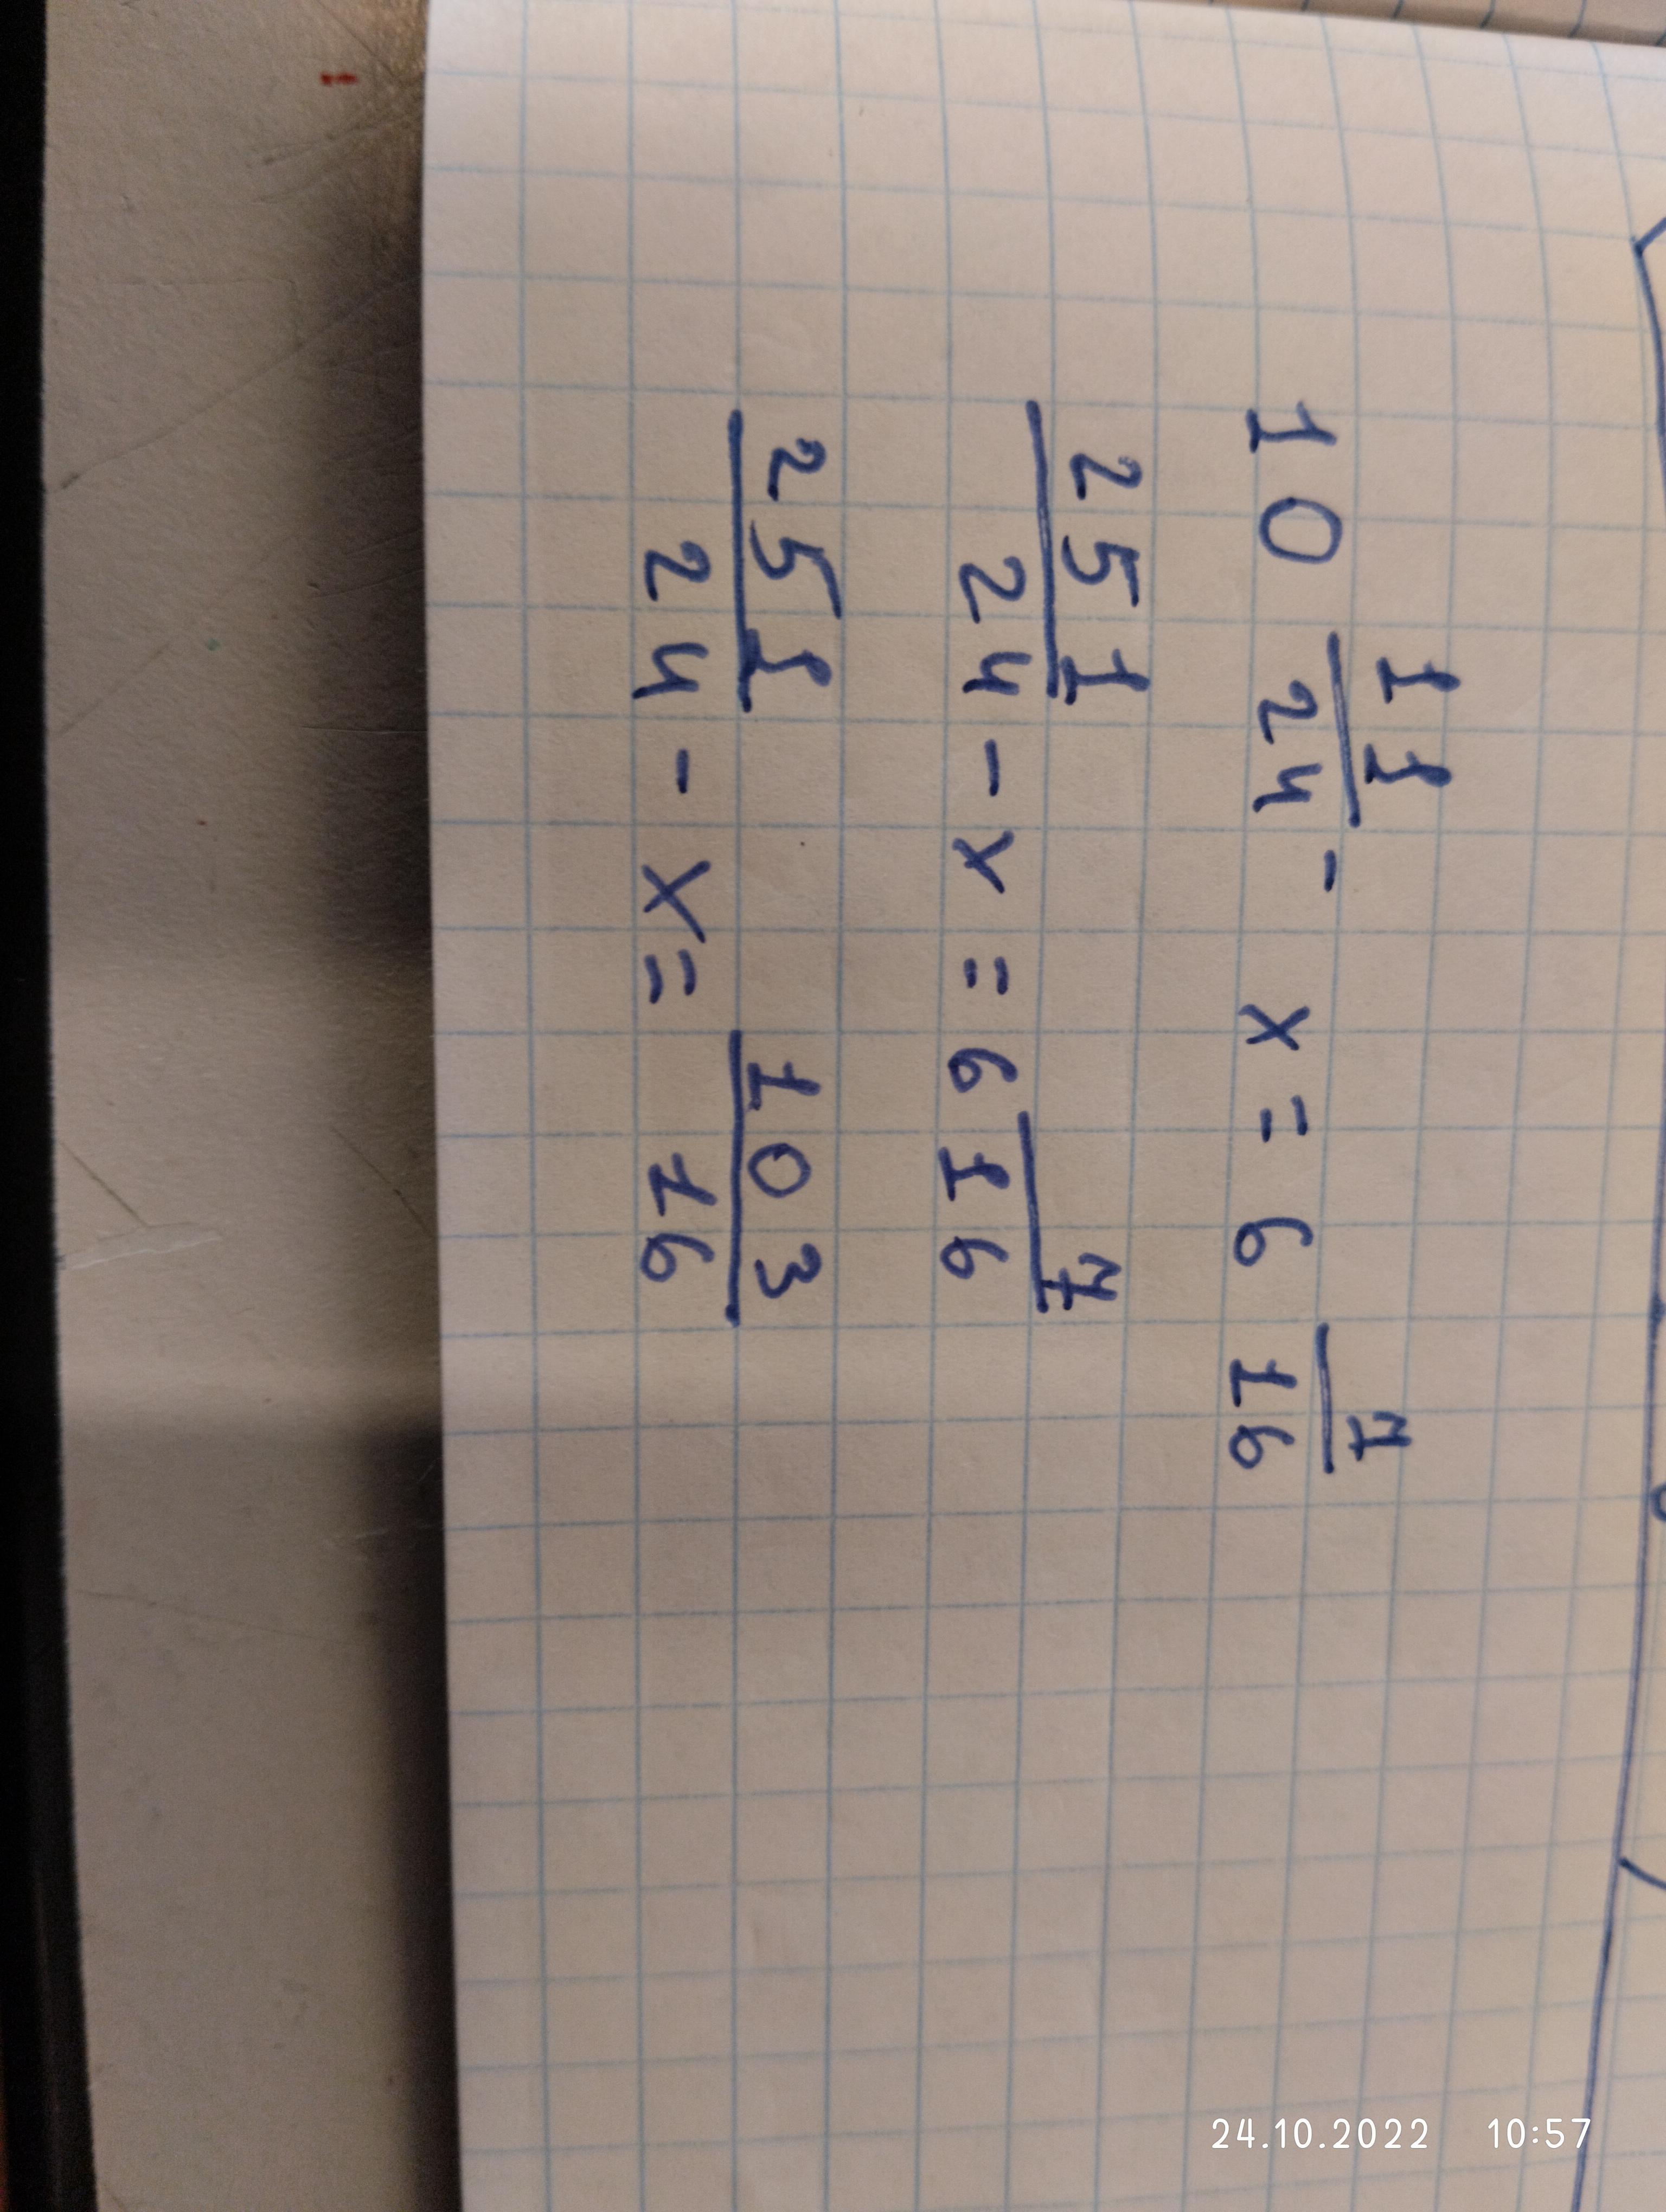 10 11/24 - x = 6 7/16
251/24 - x = 6 7/16
251/24 - x = 103/16
24.10.2022 10:57